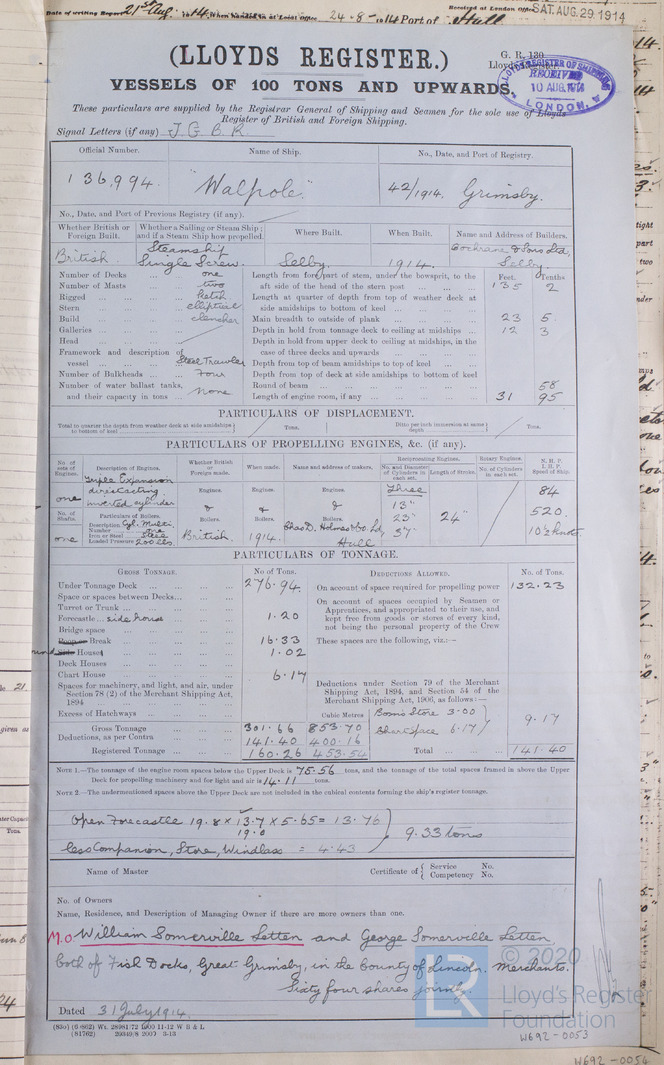 Date of writing Report 21st Aug. 1914. When handed in at Local Office 24-8-1914 Port of Hull
Received at London Office SAT. AUG. 29 1914
(LLOYDS REGISTER.)
G. R. 130
LLOYD'S REGISTER OF SHIPPING RECEIVED 10 AUG. 1914 LONDON.
VESSELS OF 100 TONS AND UPWARDS.
These particulars are supplied by the Registrar General of Shipping and Seamen for the sole use of Lloyds
Register of British and Foreign Shipping.
Signal Letters (if any) J G B R
Official Number. Name of Ship. No., Date, and Port of Registry.
136,994. "Walpole" 42/1914. Grimsby.
No., Date, and Port of Previous Registry (if any).
Whether British or Foreign Built. Whether a Sailing or Steam Ship; and if a Steam Ship how propelled. Where Built. When Built. Name and Address of Builders.
British. Steamship Single Screw. Selby. 1914. Cochrane & Sons Ltd, Selby.
Number of Decks one
Number of Masts two
Rigged Ketch
Stern elliptical
Build clencher
Galleries
Head
Framework and description of vessel Steel Trawler
Number of Bulkheads Four
Number of water ballast tanks, and their capacity in tons none
Feet. Tenths
Length from fore part of stem, under the bowsprit, to the aft side of the head of the stern post 135 2
Length at quarter of depth from top of weather deck at side amidships to bottom of keel
Main breadth to outside of plank 23 5
Depth in hold from tonnage deck to ceiling at midships 12 3
Depth in hold from upper deck to ceiling at midships, in the case of three decks and upwards
Depth from top of beam amidships to top of keel
Depth from top of deck at side amidships to bottom of keel
Round of beam 58
Length of engine room, if any 31 95
PARTICULARS OF DISPLACEMENT.
Total to quarter the depth from weather deck at side amidships to bottom of keel Tons. Ditto per inch immersion at same depth Tons.
PARTICULARS OF PROPELLING ENGINES, &c. (if any).
No. of sets of Engines. Description of Engines. Whether British or Foreign made. When made. Name and address of makers. Reciprocating Engines. No. and Diameter of Cylinders in each set. Length of Stroke. Rotary Engines. No. of Cylinders in each set. N. H. P. I. H. P. Speed of Ship.
one Triple Expansion direct acting inverted cylinder
Engines. Engines. Engines. Three
& & & 13" 84
No. of Shafts. Particulars of Boilers. Boilers. Boilers. Boilers. 23" 24" 520.
one Description Cyl. Multi. British. 1914. Chas D. Holmes & Co Ld, Hull 37" 10½ knots
Number one
Iron or Steel Steel
Loaded Pressure 200 lbs.
PARTICULARS OF TONNAGE.
GROSS TONNAGE. No. of Tons. DEDUCTIONS ALLOWED. No. of Tons.
Under Tonnage Deck 276.94.
Space or spaces between Decks
Turret or Trunk
Forecastle side house 1.20
Bridge space
Poop or Break 16.33
Side Houses 1.02
Deck Houses
Chart House 6.17
Spaces for machinery, and light, and air, under Section 78 (2) of the Merchant Shipping Act, 1894
Excess of Hatchways
Gross Tonnage 301.66 853.70
Deductions, as per Contra 141.40 400.16
Registered Tonnage 160.26 453.54
On account of space required for propelling power 132.23
On account of spaces occupied by Seamen or Apprentices, and appropriated to their use, and kept free from goods or stores of every kind, not being the personal property of the Crew
These spaces are the following, viz:—
Deductions under Section 79 of the Merchant Shipping Act, 1894, and Section 54 of the Merchant Shipping Act, 1906, as follows:—
Cubic Metres Bosn's Store 3.00
Chart Space 6.17 9.17
Total 141.40
NOTE 1.—The tonnage of the engine room spaces below the Upper Deck is 75.56 tons, and the tonnage of the total spaces framed in above the Upper
Deck for propelling machinery and for light and air is 14.11 tons.
NOTE 2.—The undermentioned spaces above the Upper Deck are not included in the cubical contents forming the ship's register tonnage.
Open Forecastle 19.8 x 13.7 x 5.65 = 13.76
19.0
less Companion, Store, Windlass = 4.43
9.33 tons
Name of Master Certificate of Service No. Competency No.
No. of Owners
Name, Residence, and Description of Managing Owner if there are more owners than one.
M.O. William Somerville Letten and George Somerville Letten,
both of Fish Docks, Great Grimsby, in the County of Lincoln. Merchants.
Sixty four shares jointly.
Dated 31 July 1914.
© 2020
LR Lloyd's Register Foundation
W692-0053
W692-0054